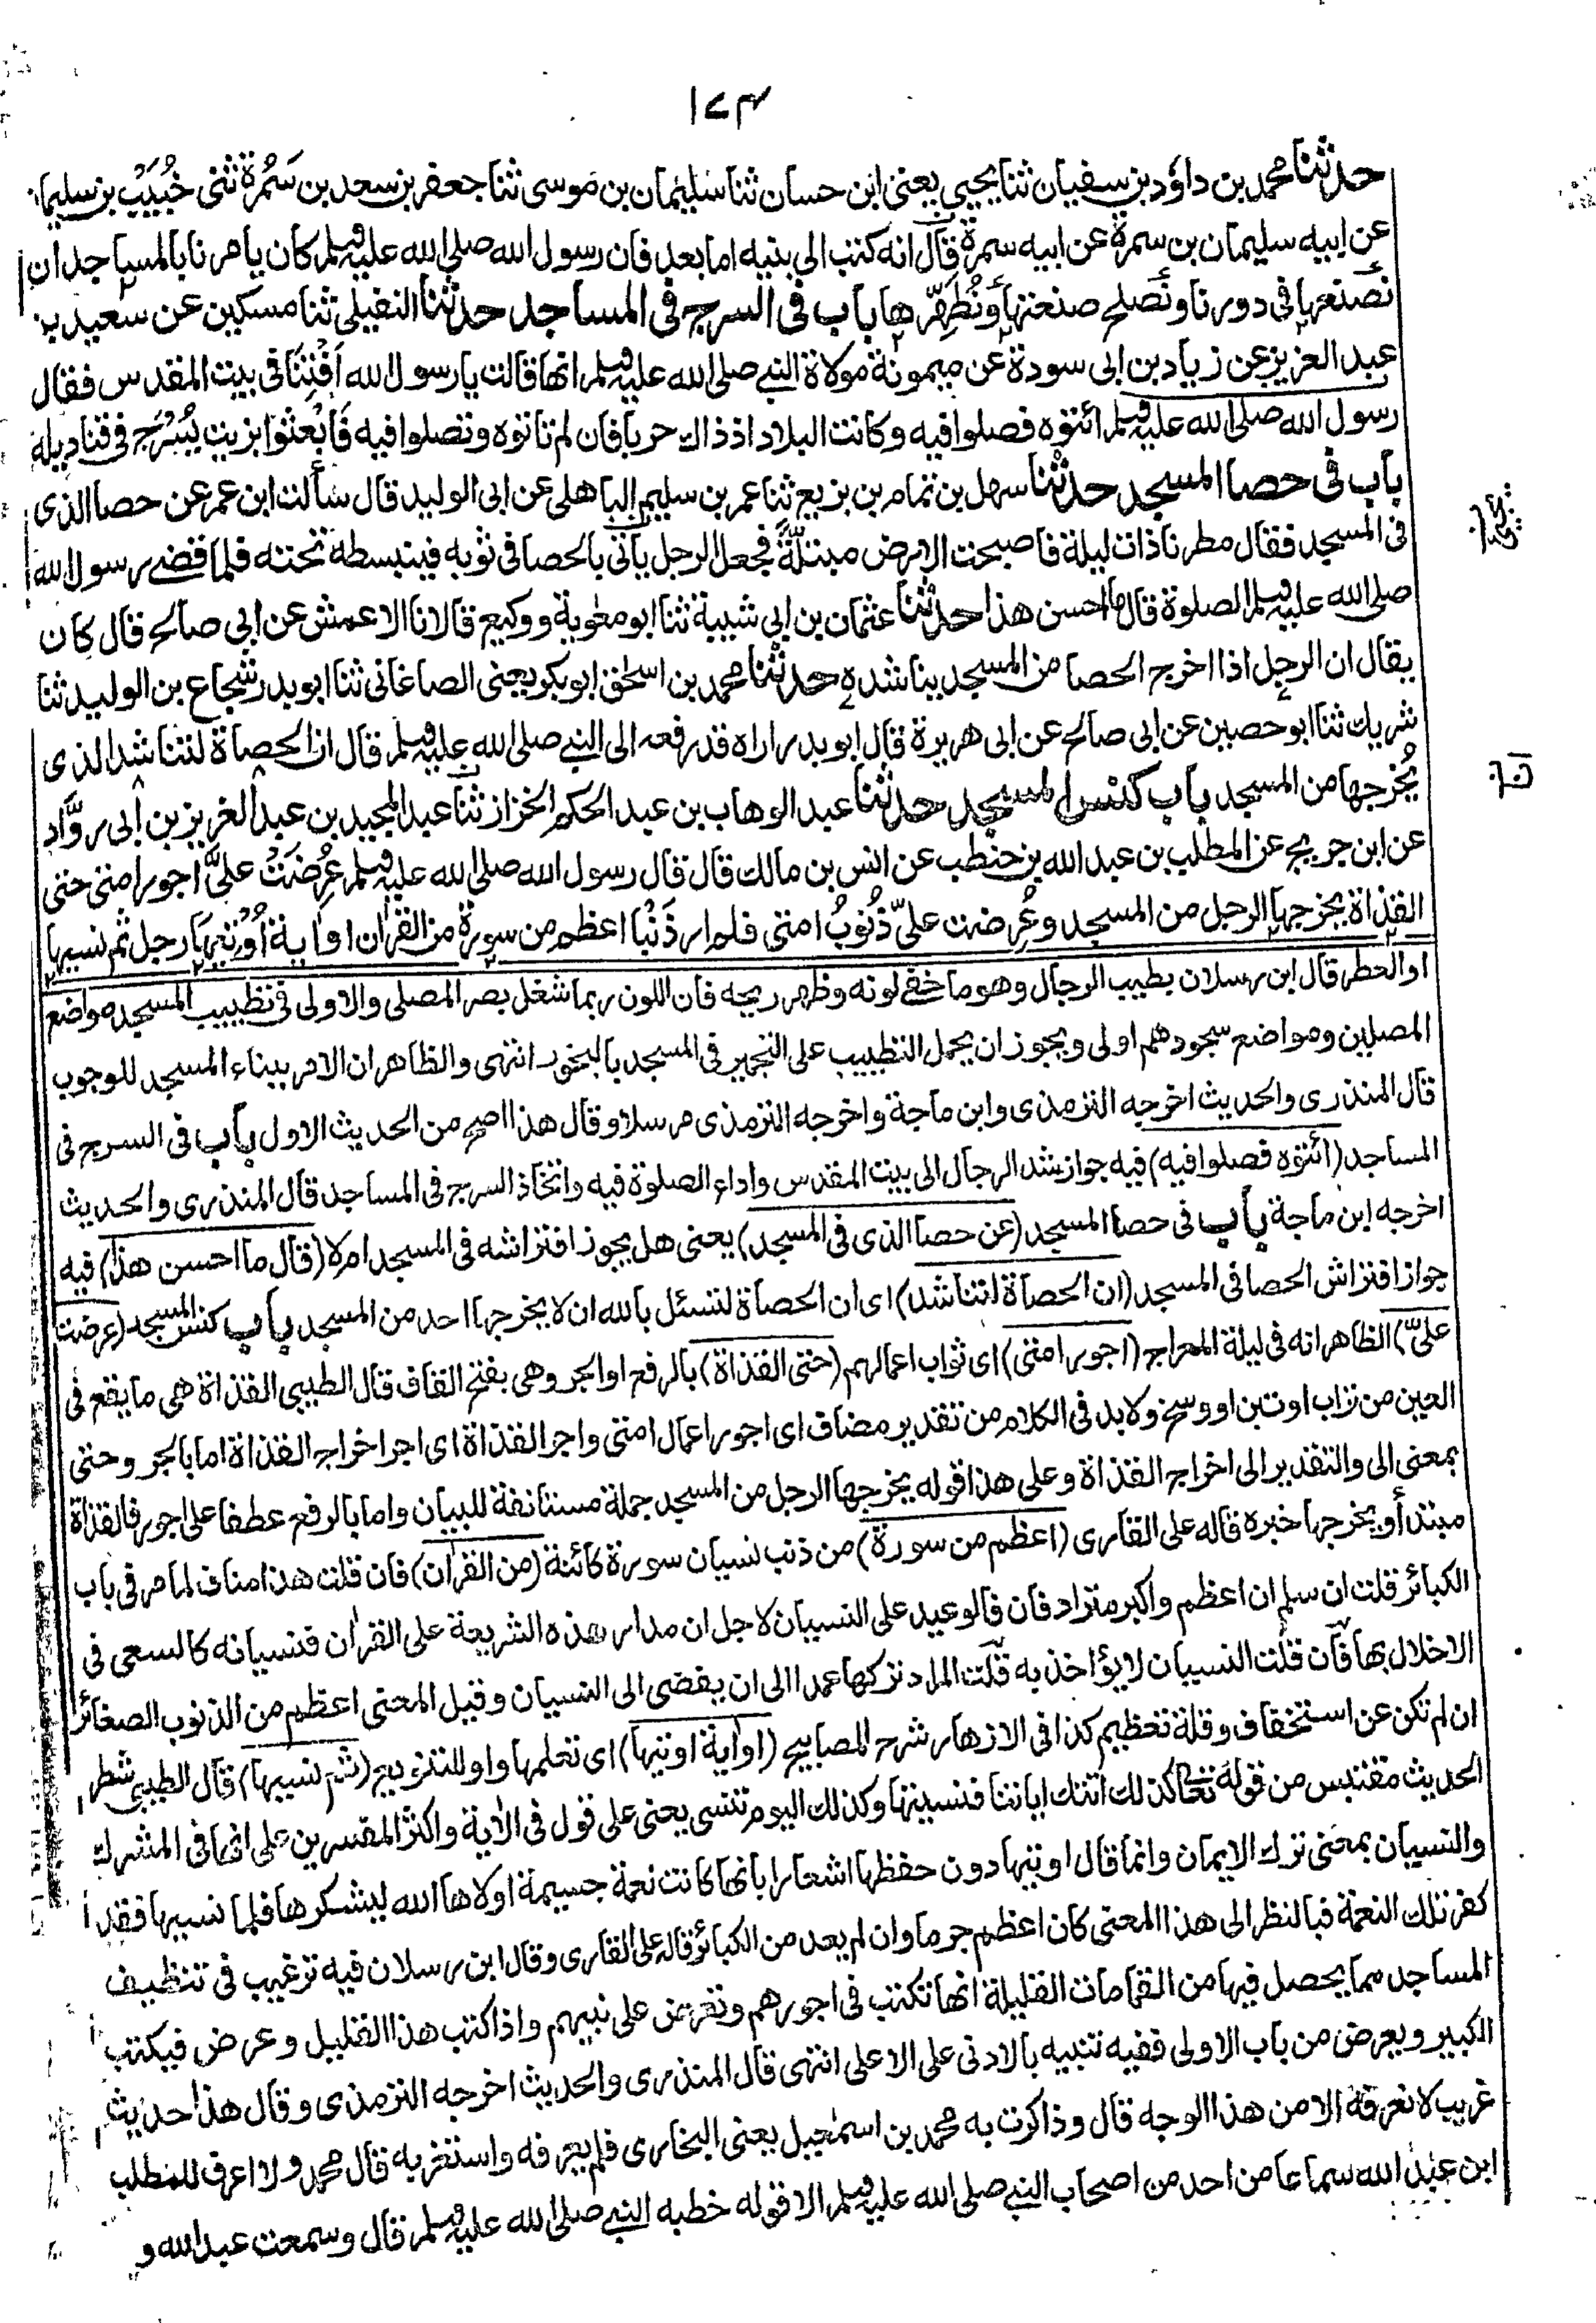 ١٧٤
حدثنا محمد بن داؤد بن سفيان ثنا يحيى يعنى ابن حسان ثنا سليمان بن موسى ثنا جعفر بن سعد بن سَمُرة ثنى خُبَيْبُ بن سليمان
عن ابيه سليمان بن سمرة عن ابيه سمرة قال انه كتب الى بنيه اما بعد فان رسول الله صلى الله عليه وسلم كان يامرنا بالمساجد ان
نصنعها فى دورنا ونُصلح صنعتها ونُطَهِّرها باب فى السرج فى المساجد حدثنا النفيلى ثنا مسكين عن سعيد بن
عبد العزيز عن زياد بن ابى سودة عن ميمونة مولاة النبى صلى الله عليه وسلم انها قالت يا رسول الله اَفْتِنَا فى بيت المقدس فقال
رسول الله صلى الله عليه وسلم ائتوه فصلوا فيه وكانت البلاد اذ ذاك حربا فان لم تاتوه وتصلوا فيه فَابْعَثُوا بزيت يُسْرَج فى قناديله
باب فى حصا المسجد حدثنا سهل بن تمام بن بزيع ثنا عمر بن سليم الباهلى عن ابى الوليد قال سألت ابن عمر عن حصا الذى
فى المسجد فقال مطرنا ذات ليلة فاصبحت الارض مبتلّةً فجعل الرجل يأتى بالحصا فى ثوبه فيبسطه تحته فلما قضى رسول الله
صلى الله عليه وسلم الصلوة قال ما احسن هذا حدثنا عثمان بن ابى شيبة ثنا ابو معوية ووكيع قالا نا الاعمش عن ابى صالح قال كان
يقال ان الرجل اذا اخرج الحصا من المسجد يناشده حدثنا محمد بن اسحق ابو بكر يعنى الصاغانى ثنا ابو بدر شجاع بن الوليد ثنا
شريك ثنا ابو حصين عن ابى صالح عن ابى هريرة قال ابو بدر اراه قد رفعه الى النبى صلى الله عليه وسلم قال ان الحصاة لتناشد الذى
يُخرجها من المسجد باب كنس المسجد حدثنا عبد الوهاب بن عبد الحكم الخزاز ثنا عبد المجيد بن عبد العزيز بن ابى روَّاد
عن ابن جريج عن المطلب بن عبد الله بن حنطب عن انس بن مالك قال قال رسول الله صلى الله عليه وسلم عُرِضَتْ علىَّ اجور امتى حتى
القذاة يخرجها الرجل من المسجد وعُرضت علىّ ذُنُوبُ امتى فلم ار ذَنْبًا اعظم من سورة من القرأن او أية اُوْتيها رجل ثم نسيها
او العطر قال ابن رسلان بطيب الرجال وهو ما خفى لونه وظهر ريحه فان اللون ربما شغل بصر المصلى والاولى فى تطييب المسجد مواضع
المصلين ومواضع سجودهم اولى ويجوز ان يحمل التطييب على التجمير فى المسجد بالبخور انتهى والظاهر ان الامر ببناء المسجد للوجوب
قال المنذرى والحديث اخرجه الترمذى وابن ماجة واخرجه الترمذى مرسلا وقال هذا اصح من الحديث الاول باب فى السرج فى
المساجد (ائتوه فصلوا فيه) فيه جواز شد الرحال الى بيت المقدس واداء الصلوة فيه واتخاذ السرج فى المساجد قال المنذرى والحديث
اخرجه ابن ماجة باب فى حصا المسجد (عن حصا الذى فى المسجد) يعنى هل يجوز افتراشه فى المسجد ام لا (قال ما احسن هذا) فيه
جواز افتراش الحصا فى المسجد (ان الحصاة لتناشد) اى ان الحصاة لتسئل بالله ان لا يخرجها احد من المسجد باب كنس المسجد (عرضت
علىّ) الظاهر انه فى ليلة المعراج (اجور امتى) اى ثواب اعمالهم (حتى القذاة) بالرفع او الجر وهى بفتح القاف قال الطيبى القذاة هى ما يقع فى
العين من تراب او تبن او وسخ ولا بد فى الكلام من تقدير مضاف اى اجور اعمال امتى واجر القذاة اى اجر اخراج القذاة اما بالجر وحتى
بمعنى الى والتقدير الى اخراج القذاة وعلى هذا قوله يخرجها الرجل من المسجد جملة مستانفة للبيان واما بالرفع عطفا على اجور فالقذاة
مبتدأ ويخرجها خبره قاله على القارى (اعظم من سورة) من ذنب نسيان سورة كائنة (من القرأن) فان قلت هذا مناف لما مر فى باب
الكبائر قلت ان سلم ان اعظم واكبر مترادفان فالوعيد على النسيان لاجل ان مدار هذه الشريعة على القرأن فنسيانه كالسعى فى
الاخلال بها فان قلت النسيان لا يؤاخذ به قلت المراد تركها عمدا الى ان يفضى الى النسيان وقيل المعنى اعظم من الذنوب الصغائر
ان لم تكن عن استخفاف وقلة تعظيم كذا فى الازهار شرح المصابيح (او أية اوتيها) اى تعلمها واو للتنويع (ثم نسيها) قال الطيبى شطر
الحديث مقتبس من قوله تعالى كذلك اتتك اياتنا فنسيتها وكذلك اليوم تنسى يعنى على قول فى الأية واكثر المفسرين على انها فى المشرك
والنسيان بمعنى ترك الايمان وانما قال اوتيها دون حفظها اشعارا بانها كانت نعمة جسيمة اولاها الله ليشكرها فلما نسيها فقد
كفر تلك النعمة فبالنظر الى هذا المعنى كان اعظم جرما وان لم يعد من الكبائر قاله على القارى وقال ابن رسلان فيه ترغيب فى تنظيف
المساجد مما يحصل فيها من القمامات القليلة انها تكتب فى اجورهم وتعرض على نبيهم واذا كتب هذا القليل وعرض فيكتب
الكبير ويعرض من باب الاولى ففيه تنبيه بالادنى على الاعلى انتهى قال المنذرى والحديث اخرجه الترمذى وقال هذا حديث
غريب لا نعرفه الا من هذا الوجه قال وذاكرت به محمد بن اسمعيل يعنى البخارى فلم يعرفه واستغربه قال محمد ولا اعرف للمطلب
ابن عبد الله سماعا من احد من اصحاب النبى صلى الله عليه وسلم الا قوله خطبه النبى صلى الله عليه وسلم قال وسمعت عبد الله و